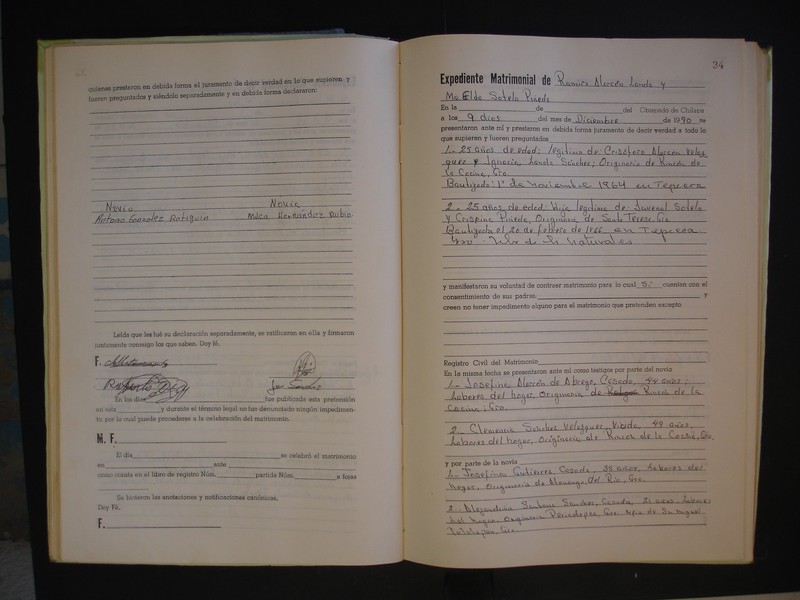 quienes prestaron en debida forma el juramento de decir verdad en lo que supieren y
fueren preguntados y siéndolo separadamente y en debida forma declararon:
Novio Novia
Arturo Gonzalez Hernández Rubio
Leída que les fué su declaración separadamente, se ratificaron en ella y firmaron
juntamente conmigo los que saben. Doy fé.
F.
En los días fue publicada esta pretensión
en esta y durante el término legal no fue denunciado ningún impedimen-
to, por lo cual puede procederse a la celebración del matrimonio.
M. F.
El día se celebró el matrimonio
en ante
como consta en el libro de registro Núm. partida Núm. a fojas
Se hicieron las anotaciones y notificaciones canónicas.
Doy Fé,
F.
34
Expediente Matrimonial de Ramiro Alarcón Landa y
Ma Elda Sotelo Pineda
En la de del Obispado de Chilapa
a los 9 dias del mes de Diciembre de 1990 se
presentaron ante mí y prestaron en debida forma juramento de decir verdad a todo lo
que supieren y fueren preguntados.
1.- 25 años de edad: legitimo de Crisóforo Alarcon Velaz
quez y Ignacia Landa Sánchez; Originario de Rincón de
la Cocina, Gro.
Bautizado: 1° de noviembre 1964 en Tepecoa
2.- 25 años de edad: Hija legitima de Juvenal Sotelo
y Crispina Pineda, Originaria de Santa Teresa, Gro
Bautizada el 20 de febrero de en Tepecoa
Gro.
y manifestaron su voluntad de contraer matrimonio para lo cual Si cuentan con el
consentimiento de sus padres. y
creen no tener impedimento alguno para el matrimonio que pretenden excepto
Registro Civil del Matrimonio
En la misma fecha se presentaron ante mí como testigos por parte del novio
1.- Josefina Alarcón de Abrego, Casada, 44 años;
Labores del hogar, Originaria de Rincón de la
Cocina, Gro.
2.- Clemencia Sánchez Velázquez, Viuda, 49 años,
Labores del hogar, Originaria de Rincón de la Cocina, Gro.
y por parte de la novia
1.- Josefina Gutierrez, Casada, 38 años, Labores del
hogar, Originaria de del Río, Gro.
2. Santana Sánchez, Casada, 21 años, Labores
del hogar, Originaria Gro. de San Miguel
Gro.